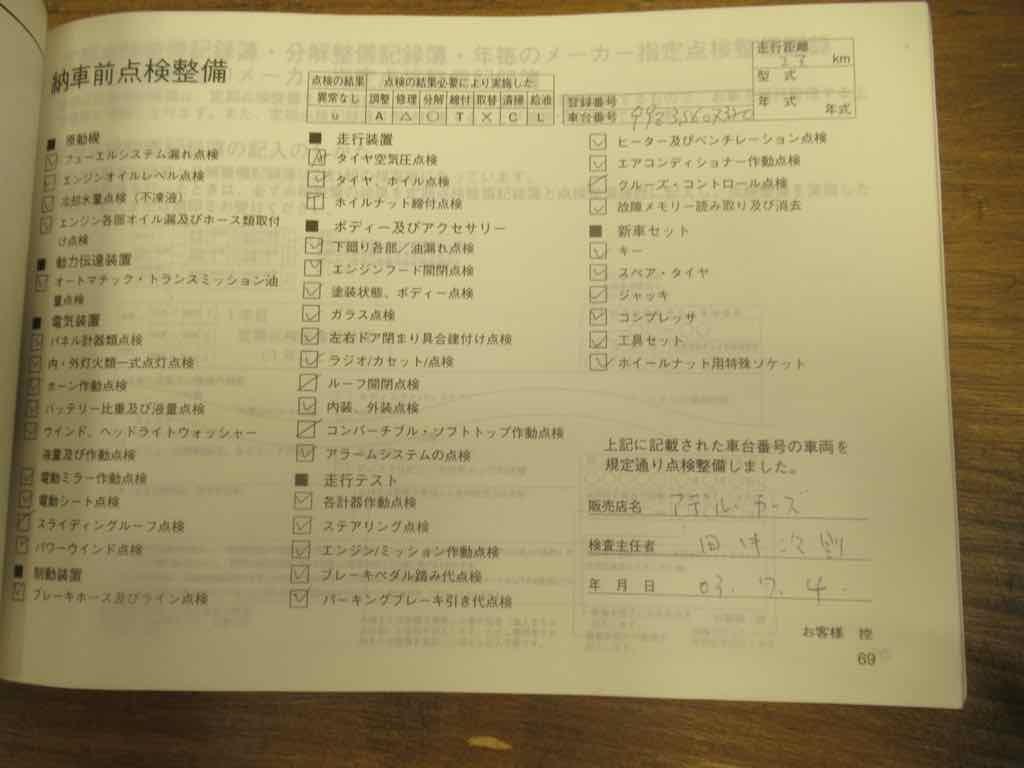 納車前点検整備
点検の結果 点検の結果必要により実施した
異常なし 調整 修理 分解 締付 取替 清掃 給油
u A △ ○ T × C L
登録番号
車台番号
走行距離
km
型式
年式 年式
■ 原動機
フューエルシステム漏れ点検
エンジンオイルレベル点検
冷却水量点検(不凍液)
エンジン各部オイル漏及びホース類取付
け点検
■ 動力伝達装置
オートマチック・トランスミッション油
量点検
■ 電気装置
パネル計器類点検
内・外灯火類一式点灯点検
ホーン作動点検
バッテリー比重及び液量点検
ウインド、ヘッドライトウォッシャー
液量及び作動点検
電動ミラー作動点検
電動シート点検
スライディングルーフ点検
パワーウインド点検
■ 制動装置
ブレーキホース及びライン点検
■ 走行装置
タイヤ空気圧点検
タイヤ、ホイル点検
ホイルナット締付点検
■ ボディー及びアクセサリー
下廻り各部/油漏れ点検
エンジンフード開閉点検
塗装状態、ボディー点検
ガラス点検
左右ドア閉まり具合建付け点検
ラジオ/カセット/点検
ルーフ開閉点検
内装、外装点検
コンバーチブル・ソフトトップ作動点検
アラームシステムの点検
■ 走行テスト
各計器作動点検
ステアリング点検
エンジン/ミッション作動点検
ブレーキペダル踏み代点検
パーキングブレーキ引き代点検
ヒーター及びベンチレーション点検
エアコンディショナー作動点検
クルーズ・コントロール点検
故障メモリー読み取り及び消去
■ 新車セット
キー
スペア・タイヤ
ジャッキ
コンプレッサ
工具セット
ホイールナット用特殊ソケット
上記に記載された車台番号の車両を
規定通り点検整備しました。
販売店名 アデル・カーズ
検査主任者
年月日 03.7.4.
お客様 控
69